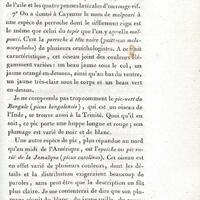 de l'aile et les quatre pennes latérales d'un rouge vif.
9° On a donné à Cayenne le nom de maïpouri à
une espèce de perroche dont le sifflement rigu est
le même que celui du tapir que l'on y appelle maï-
pouri. C'est la perroche à tête noire (psittacus mela-
nocephalus) de plusieurs ornithologistes. A ce
caractéristique, cet oiseau joint des couleurs élé-
gamment variées : un beau jaune sous le col, un
jaune orangé en-dessous, ainsi qu'au bas du ventre,
un jaune très-clair sous le corps et un beau vert
en-dessus.
Je ne comprends pas trop comment le pic-vert du
Bengale (picus bengalensis), qui est un oiseau de
de l'Inde, se trouve aussi à la Trinité. Quoi qu'il en
soit, ce pic porte une huppe longue et rouge ; son
plumage est varié de noir et de blanc.
Une autre espèce de pic, plus répandue au nord
au midi de l'Amérique, est l'épeiche ou pic va-
rié de la Jamaïque (picus carolinus). Cet oiseau est
en effet varié de plusieurs couleurs, dont les dé-
tails et la distribution exigeraient beaucoup de
paroles, sans peut-être que la description en fût
plus claire. Je me contenterai de dire que son